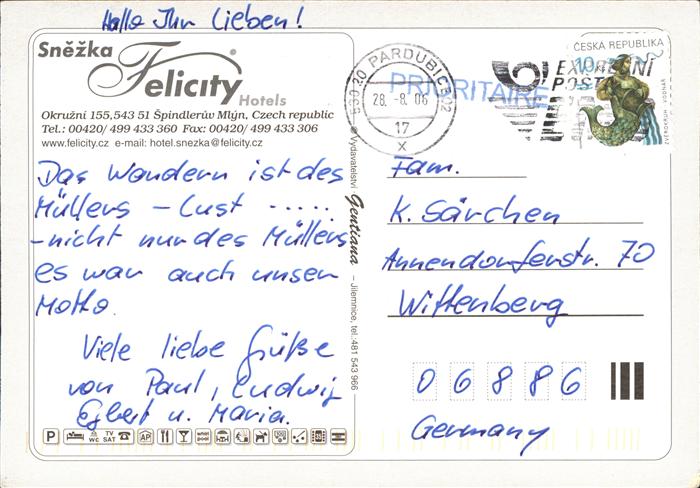 Hallo Ihr Lieben!
Sněžka
Felicity
Hotels
Okružní 155,543 51 Špindlerův Mlýn, Czech republic
Tel.: 00420/ 499 433 360 Fax: 00420/ 499 433 306
www.felicity.cz e-mail: hotel.snezka@felicity.cz
Das Wandern ist des
Müllers – Lust .....
- nicht nur des Müllers
es war auch unser
Motto.
Viele liebe Grüße
von Paul, Ludwig
Egbert u. Maria.
P WC TV SAT AP
© Vydavatelství Gentiana – Jilemnice, tel.: 481 543 966
530 20 PARDUBICE 02
28. -8. 06
17
X
PRIORITAIRE
POST
ČESKÁ REPUBLIKA
10
ZVĚROKRUH VODNÁŘ
Fam.
K. Särchen
Annendorferstr. 70
Wittenberg
0 6 8 8 6
Germany